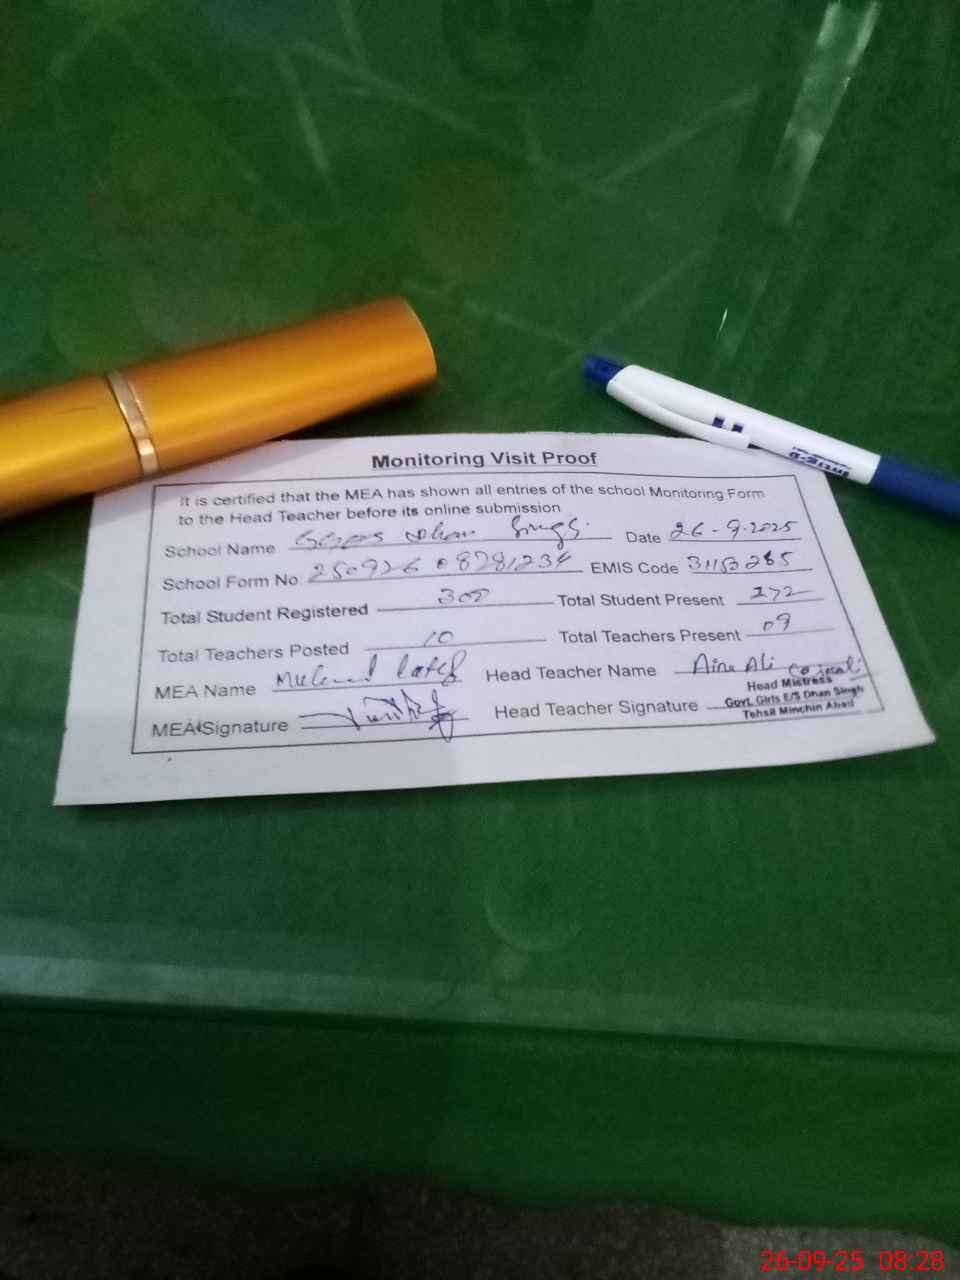 Monitoring Visit Proof
It is certified that the MEA has shown all entries of the school Monitoring Form
to the Head Teacher before its online submission
School Name GGES Dhan Singh Date 26-9-2025
School Form No 250926 08281234 EMIS Code 31153265
Total Student Registered Total Student Present 272
Total Teachers Posted 10 Total Teachers Present 09
MEA Name Head Teacher Name Ali
MEA Signature Head Teacher Signature
Head Mistress
Govt. Girls E/S Dhan Singh
Tehsil Minchin Abad
26-09-25 08:28